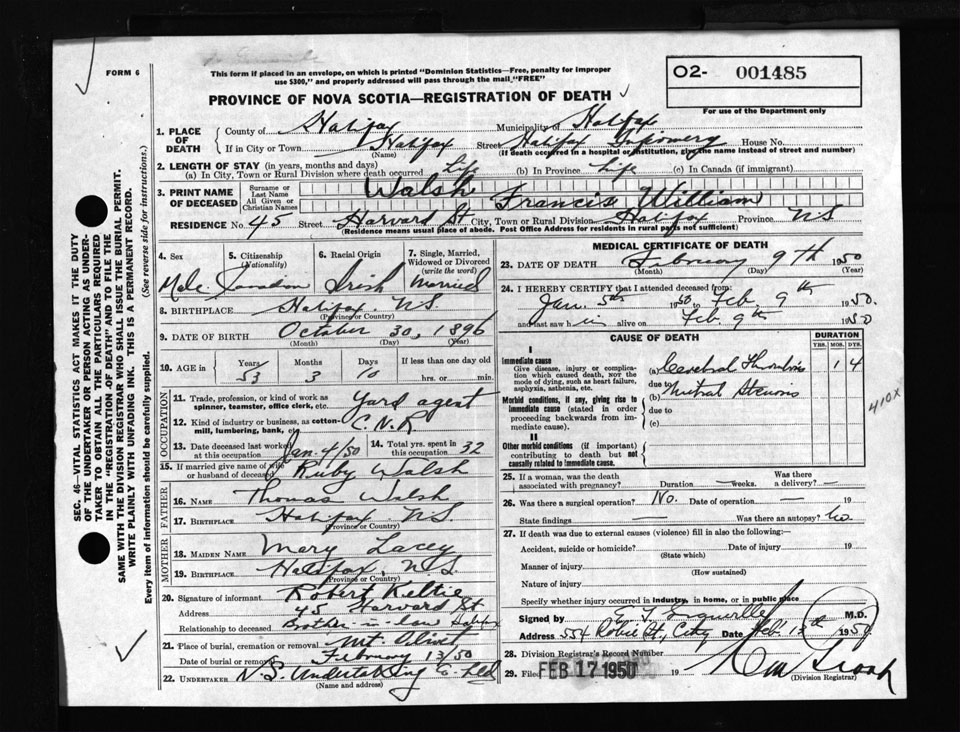 FORM 6
This form if placed in an envelope, on which is printed "Dominion Statistics—Free, penalty for improper
use $300," and properly addressed will pass through the mail "FREE"
O2- 001485
For use of the Department only
PROVINCE OF NOVA SCOTIA—REGISTRATION OF DEATH
1. PLACE OF DEATH
County of Halifax Municipality of Halifax
If in City or Town Halifax Street Halifax Infirmary House No.
(Name) (If death occurred in a hospital or institution, give the name instead of street and number)
2. LENGTH OF STAY (in years, months and days)
(a) In City, Town or Rural Division where death occurred Life (b) In Province Life (c) In Canada (if immigrant)
3. PRINT NAME OF DECEASED
Surname or Last Name Walsh
All Given or Christian Names Francis William
RESIDENCE No. 45 Street Harvard St City, Town or Rural Division Halifax Province NS
(Residence means usual place of abode. Post Office Address for residents in rural parts not sufficient)
4. Sex
Male
5. Citizenship (Nationality)
Canadian
6. Racial Origin
Irish
7. Single, Married, Widowed or Divorced (write the word)
Married
8. BIRTHPLACE Halifax N.S.
(Province or Country)
9. DATE OF BIRTH October 30, 1896
(Month) (Day) (Year)
10. AGE in Years Months Days If less than one day old
53 3 10 hrs. or min.
OCCUPATION
11. Trade, profession, or kind of work as spinner, teamster, office clerk, etc. Yard agent
12. Kind of industry or business, as cotton-mill, lumbering, bank, etc. C.N.R
13. Date deceased last worked at this occupation Jan. 4/50 14. Total yrs. spent in this occupation 32
15. If married give name of wife or husband of deceased Ruby Walsh
FATHER
16. NAME Thomas Walsh
17. BIRTHPLACE Halifax NS.
(Province or Country)
MOTHER
18. MAIDEN NAME Mary Lacey
19. BIRTHPLACE Halifax, N.S.
(Province or Country)
20. Signature of informant Robert Keltie
Address 45 Harvard St
Relationship to deceased Brother-in-law Halifax
21. Place of burial, cremation or removal Mt. Olivet
Date of burial or removal February 13/50
22. UNDERTAKER N.S. Undertaking Co. Ltd
(Name and address)
MEDICAL CERTIFICATE OF DEATH
23. DATE OF DEATH February 9th 1950
(Month) (Day) (Year)
24. I HEREBY CERTIFY that I attended deceased from:
Jan. 5th 1950 to Feb. 9th 1950.
and last saw him alive on Feb. 9th 1950
CAUSE OF DEATH
DURATION
YRS. MOS. DYS.
I
Immediate cause
Give disease, injury or complication which caused death, NOT the mode of dying, such as heart failure, asphyxia, asthenia, etc.
(a) Cerebral Thrombosis 1 4
due to
Morbid conditions, if any, giving rise to immediate cause (stated in order proceeding backwards from immediate cause).
(b) Mitral Stenosis
due to
(c)
410X
II
Other morbid conditions (if important) contributing to death but not causally related to immediate cause.
25. If a woman, was the death associated with pregnancy? Duration — weeks. Was there a delivery? —
26. Was there a surgical operation? No. Date of operation — 19
State findings — Was there an autopsy? No.
27. If death was due to external causes (violence) fill in also the following:
Accident, suicide or homicide? Date of injury 19
(State which)
Manner of injury
(How sustained)
Nature of injury
Specify whether injury occurred in industry, in home, or in public place
Signed by M.D.
Address 554 Robie St., City Date Feb 13th 1950
28. Division Registrar's Record Number
29. Filed FEB 17 1950 19
(Division Registrar)
SEC. 46—VITAL STATISTICS ACT MAKES IT THE DUTY
OF THE UNDERTAKER OR PERSON ACTING AS UNDER-
TAKER TO OBTAIN ALL THE PARTICULARS REQUIRED
IN THE "REGISTRATION OF DEATH" AND TO FILE THE
SAME WITH THE DIVISION REGISTRAR WHO SHALL ISSUE THE BURIAL PERMIT.
WRITE PLAINLY WITH UNFADING INK. THIS IS A PERMANENT RECORD.
Every item of information should be carefully supplied. (See reverse side for instructions.)